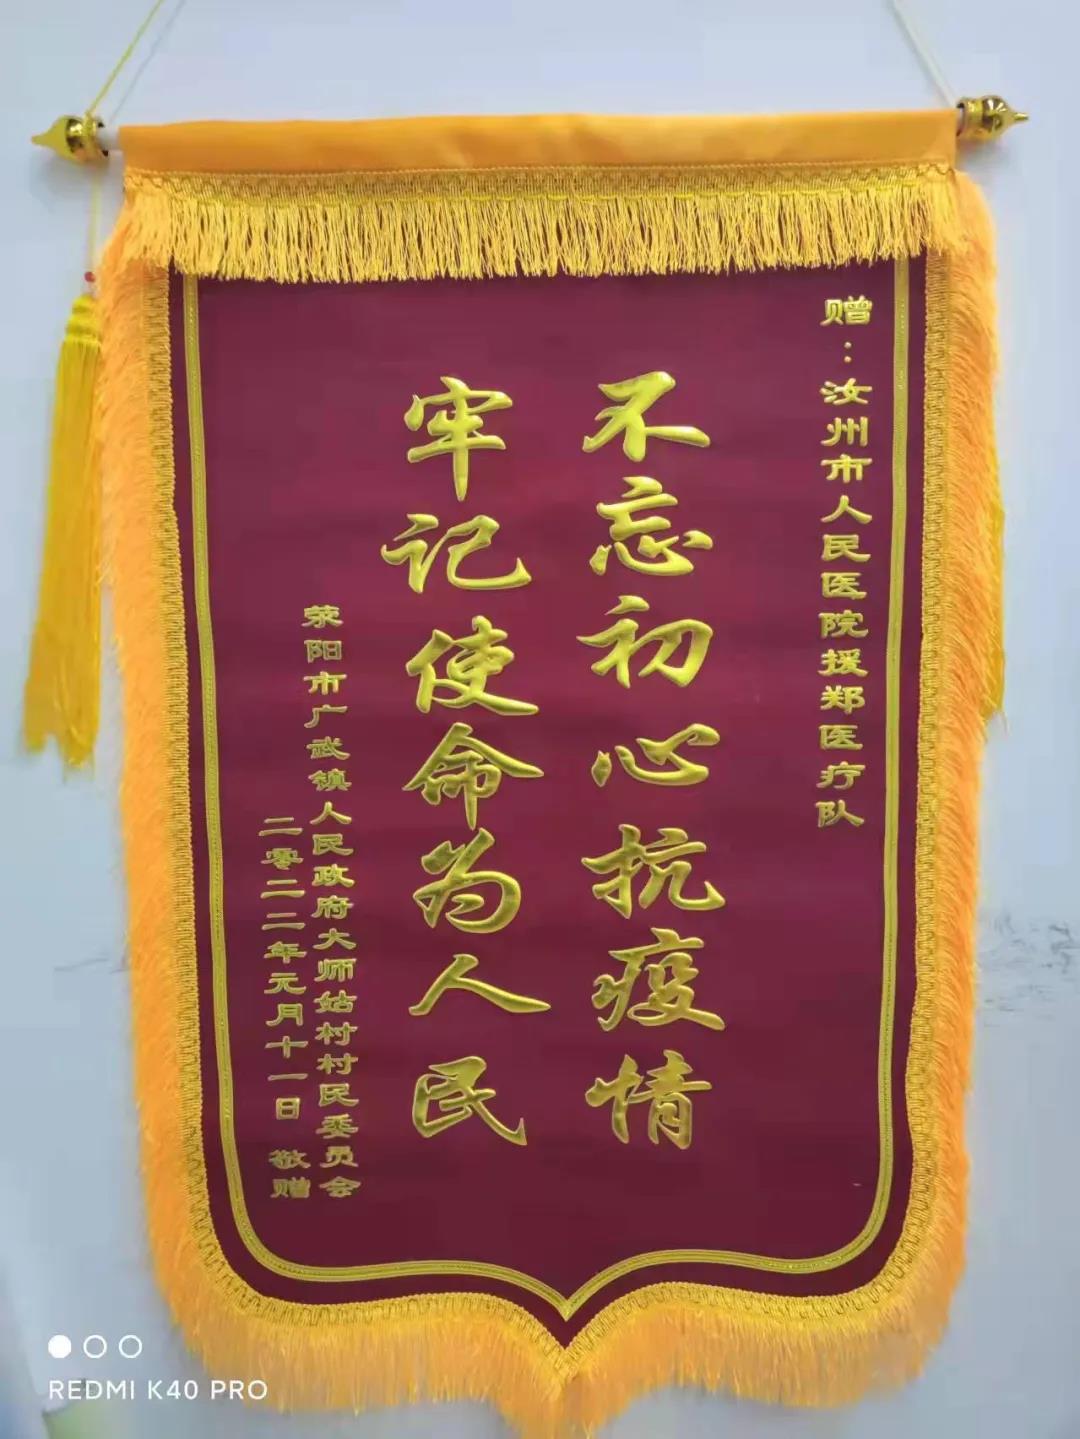 赠：汝州市人民医院援郑医疗队
不忘初心抗疫情
牢记使命为人民
荥阳市广武镇人民政府大师姑村村民委员会
二零二二年元月十一日 敬赠
REDMI K40 PRO